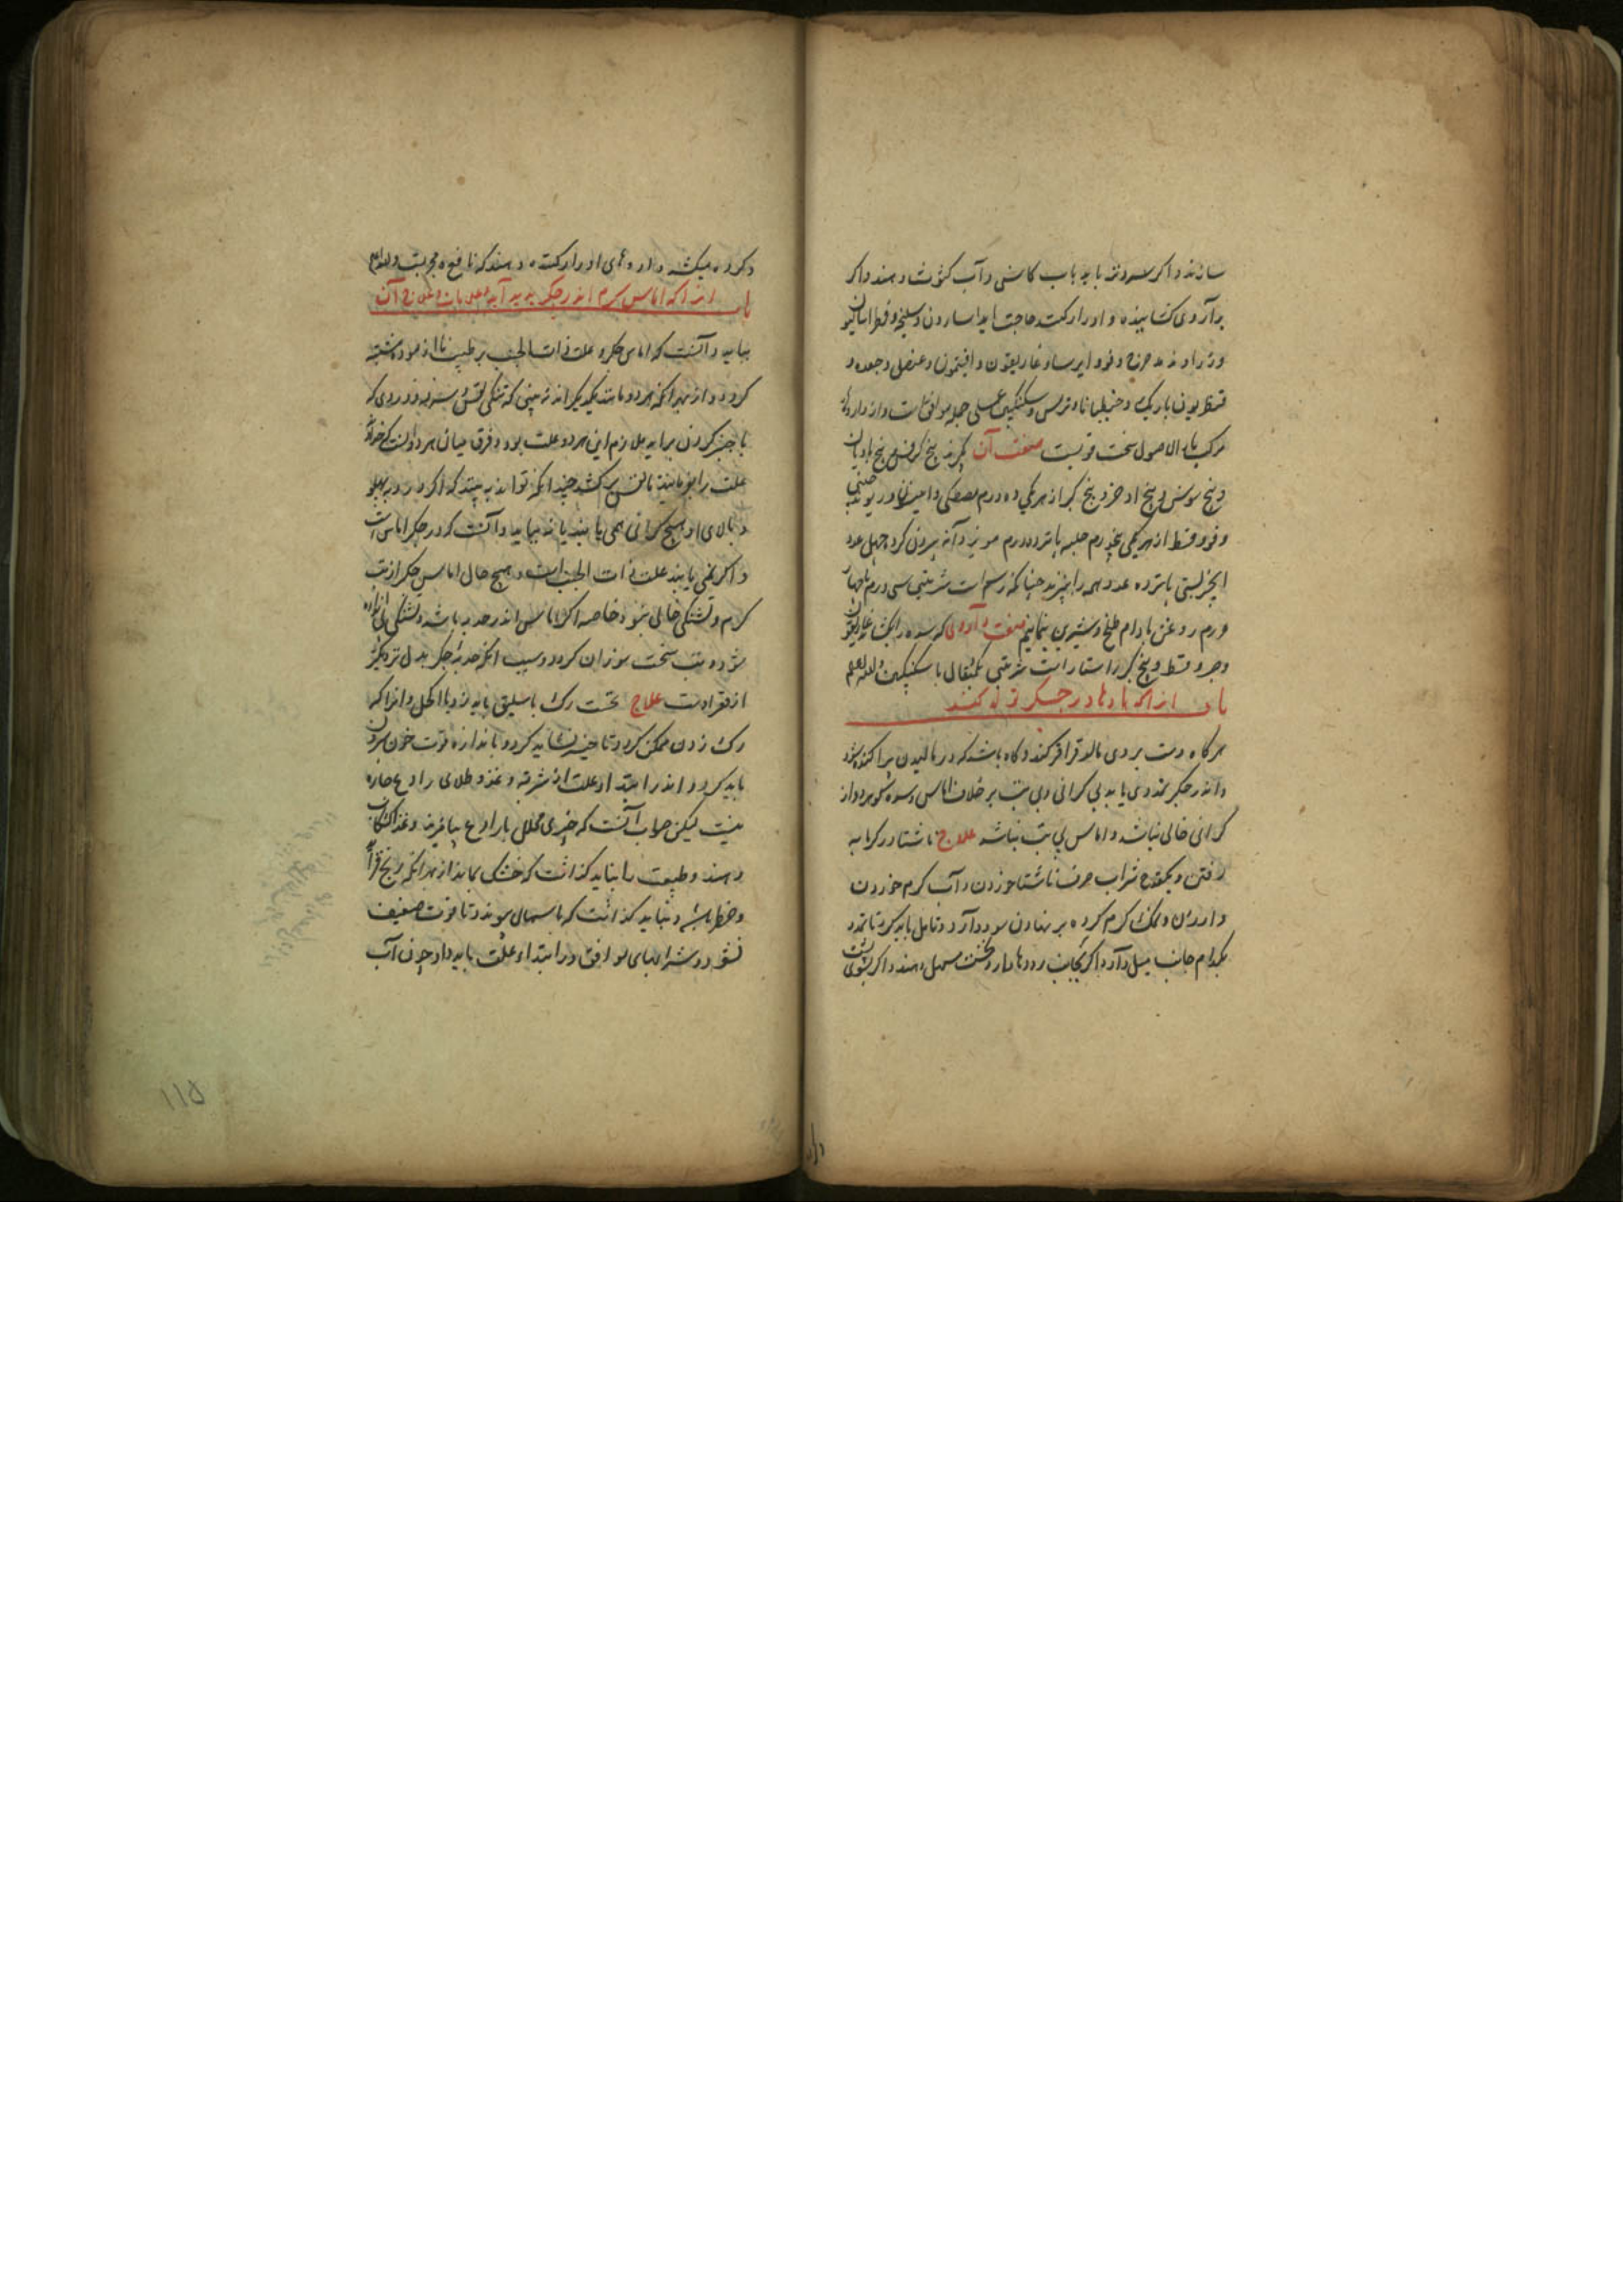 سازند و اکر باید باب کاسنی و آب کثوث دهند و اکر
بداروی کشاینده و ادرار کننده حاجت آید اسارون و سلیخه و فطراسالیون
وزراوند مدحرج و فوه و ایرسا و غاریقون و افتیمون و عنصل و جعده و
قنطریون باریک و جنطیانا و ترمس و سکنکبین عسلی جمله موافق است و از داروهاء
مرکب ماء الاصول سخت قویست صفت آن بگیرند بیخ کرفس و بیخ بادیان
و بیخ سوسن و بیخ اذخر و بیخ کبر از هر یکی ده درم مصطکی و انیسون و ریوند چینی
و فوه و قسط از هر یکی پنج درم حلبه پانزده درم مویز دانه بیرون کرده چهل عدد
انجیر بستی پانزده عدد همه را بپزند چنانکه رسم است شربتی سی درم با چهار
درم روغن بادام طلخ و شیرین صفت داروی که سده را بکشاید غاریقون
و قسط و بیخ کبر راستا راست شربتی یکمثقال با سکنکبین والله اعلم
باب از انکه بادها در جکر تولد کند
هرکاه دست بر وی مالند قراقر کند و کاه باشد که در مالیدن پراکنده شود
و اندر جکر تمددی یابد بی کرانی و بی تب بر خلاف اماس و سده از
کرانی خالی نباشد و اماس بی تب نباشد علاج ناشتا در کرمابه
رفتن و یکقدح شراب صرف ناشتا خوردن و آب کرم خوردن
و ارزن و نمک کرم کرده بر نهادن سود دارد و تامل باید کرد تا تمدد
بکدام جانب میل دارد اکر بجانب رودها دارد نخست مسهل دهند و اکر بسوی پشت
و کرده میکشد داروهای ادرار کننده دهند که نافع و مجربست والله اعلم
باب از انکه اماس کرم اندر جکر پدید آید و علامات و علاج آن
بباید دانست که اماس جکر و علت ذات الجنب بر طبیب نا ازموده مشتبه
کردد و از بهر انکه هر دو مانند یکدیکراند نه بینی که تنکی نفس و سرفه و دردی که
با جنبر کردن براید ملازم این هر دو علت بود و فرق میان هر دو آنست که خداوند
علت را بفرمایند تا نفس برکشد چندانکه تواند ببینند که اکر در پهلو
و بالای او هیچ کرانی همی یابند یا نه بباید دانست که در جکر اماس است
و اکر نمی یابند علت ذات الجنب است و هیچ حال اماس جکر از تب
کرم و تشنکی خالی نبود خاصه اکر اماس اندر حدبه باشد و تشنکی
شود و تب سخت سوزان کردد و سبب انکه حدبه جکر بدل نزدیکتر
از مقعر است علاج نخست رک باسلیق باید زد یا اکحل و از انکه
رک زدن ممکن کردد تاخیر نشاید کرد و باندازه قوت خون بیرون
باید کرد و اندر ابتداء علت از شربت و غذا و طلای رادع چاره
نیست لیکن صواب آنست که چیزی محلل با رادع بیامیزند و غذا کشکاب
دهند و طبیعت را نباید کذاشت که خشک بماند از بهر انکه رنج فزاید
و خطر باشد و نباید کذاشت که باسهال پیوندد تا قوت ضعیف
نشود و شرابهای موافق در ابتداء علت باید داد چون آب
۱۱۵